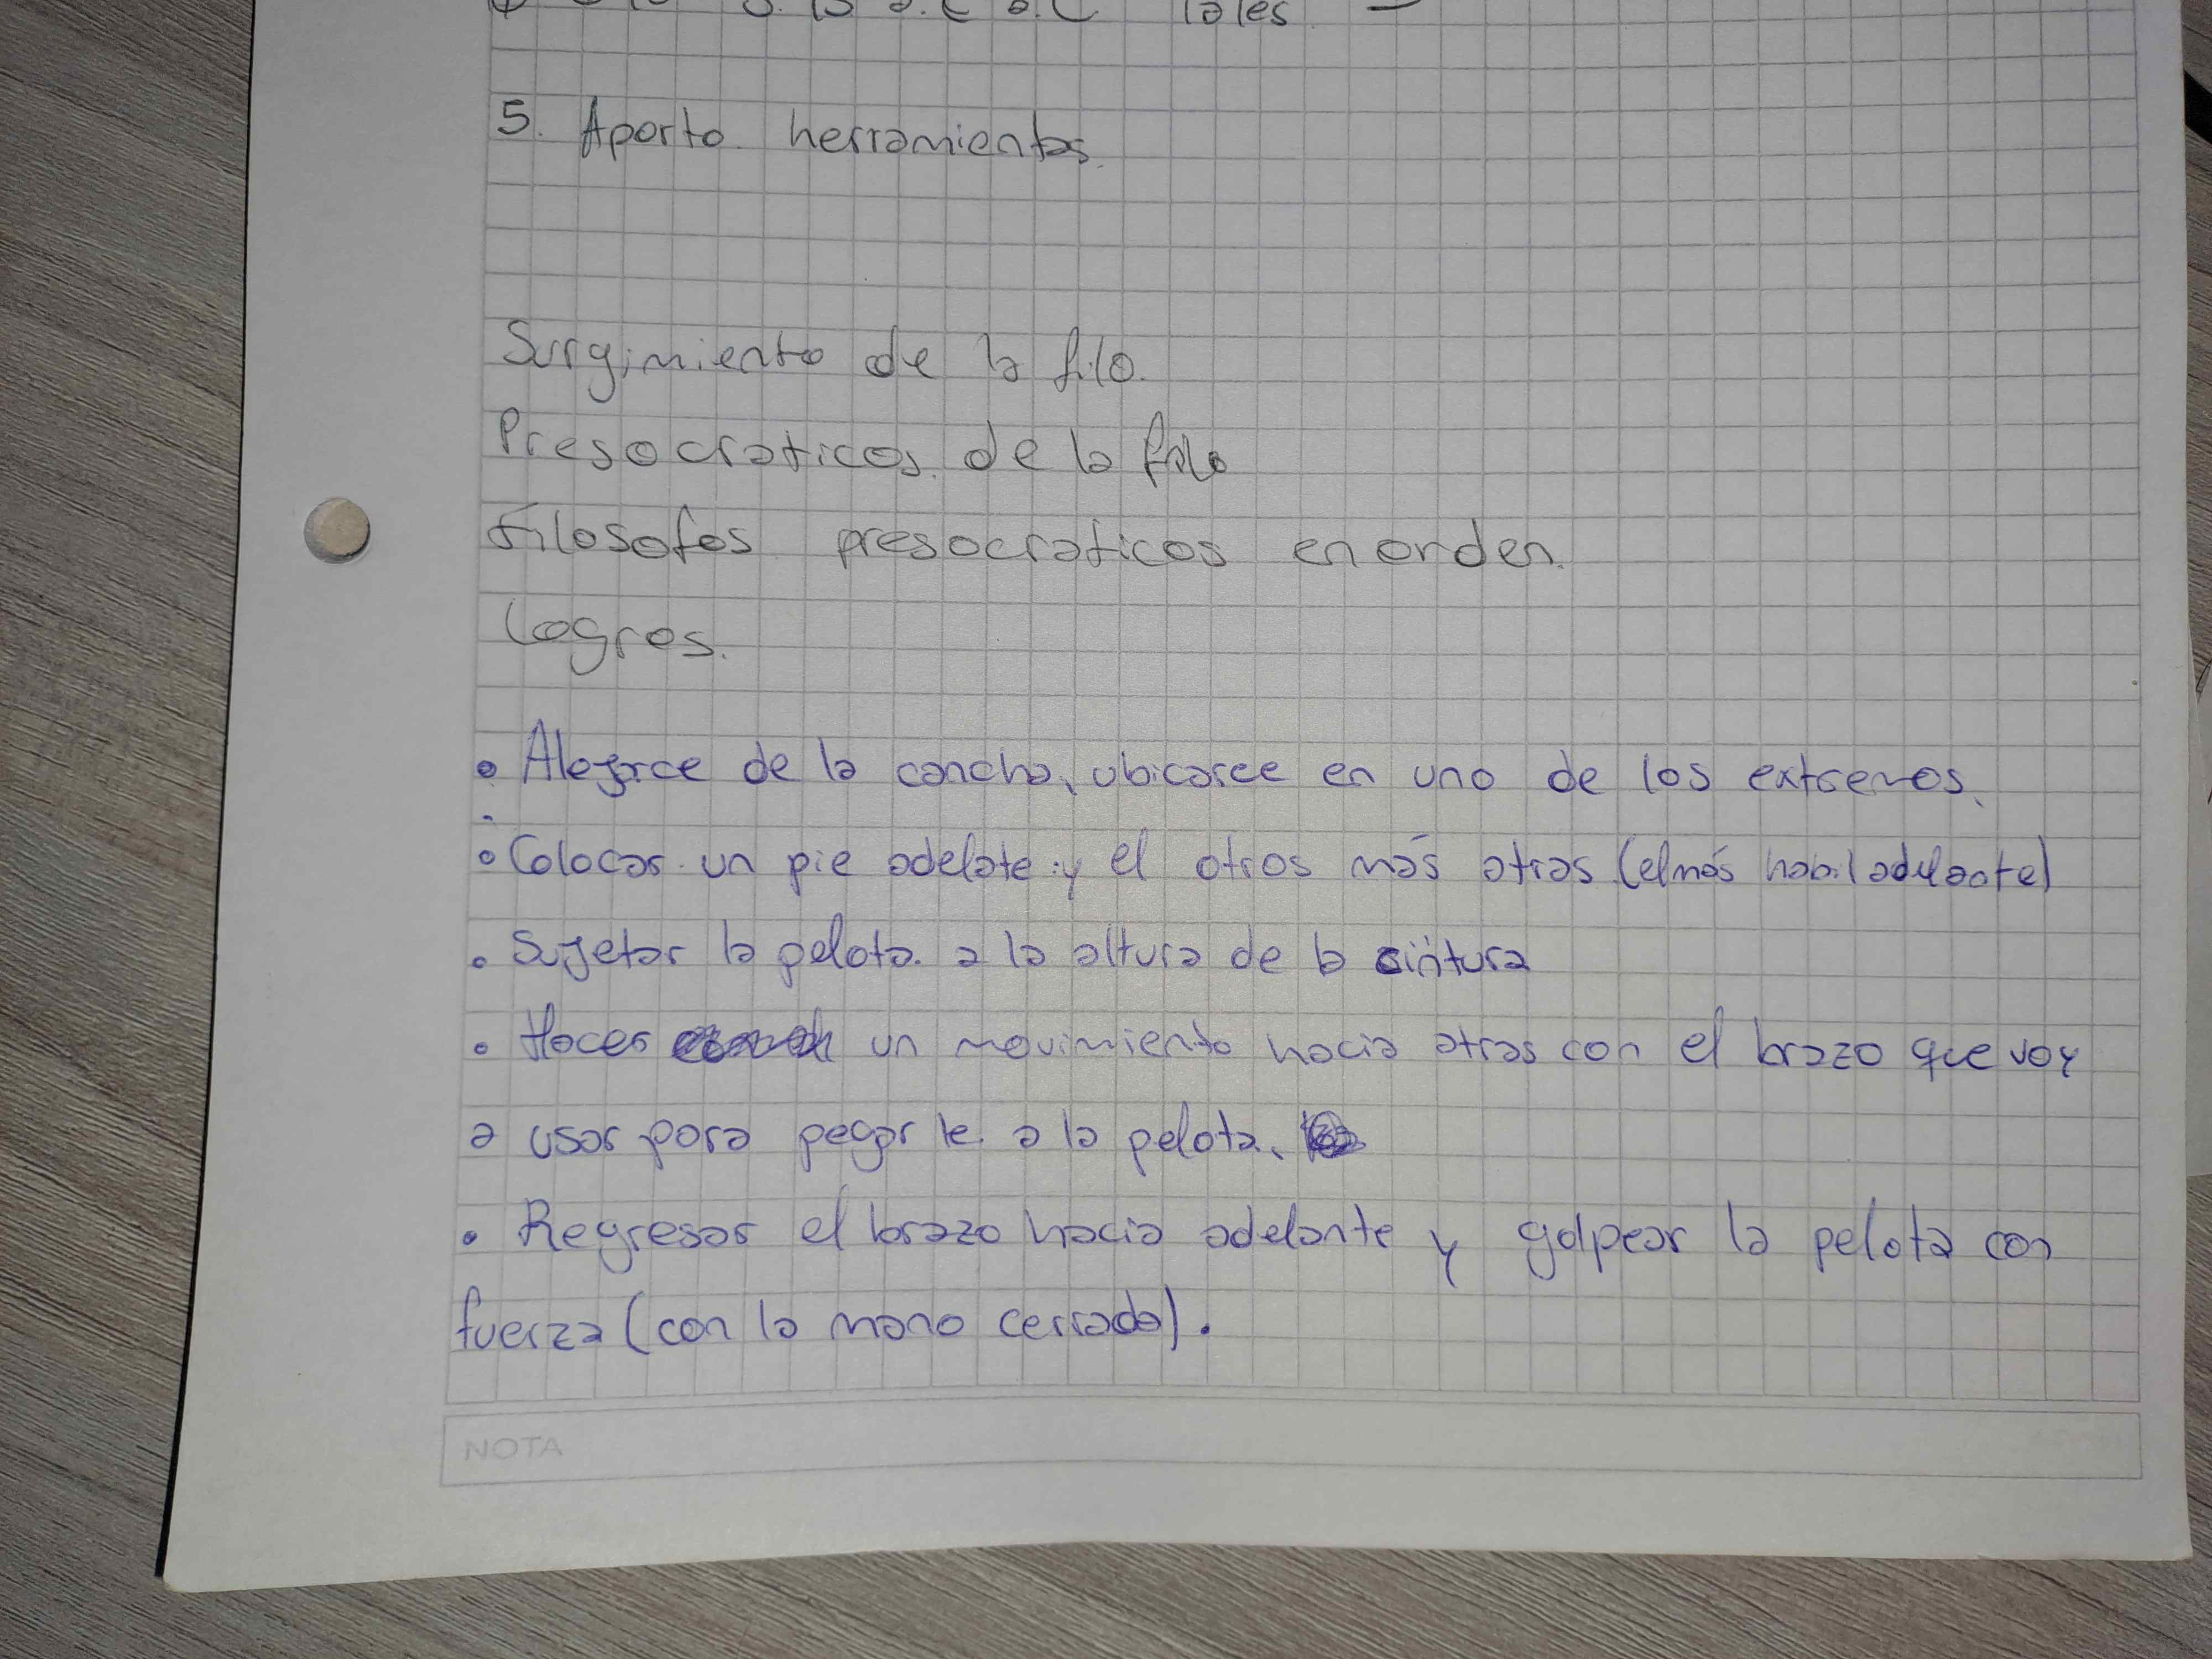 Tales
5. Aporto herramientas.
Surgimiento de la filo.
Presocraticos de la filo
Filosofos presocraticos en orden.
Logros.
• Alejarce de la cancha, ubicarce en uno de los extremos.
• Colocar un pie adelate y el otros más atras (el más habil adelante)
• Sujetar la pelota a la altura de la cintura
• Hacer un movimiento hacia atras con el brazo que voy
a usar para pegar le a la pelota.
• Regresar el brazo hacia adelante y golpear la pelota con
fuerza (con la mano cerrada).
NOTA